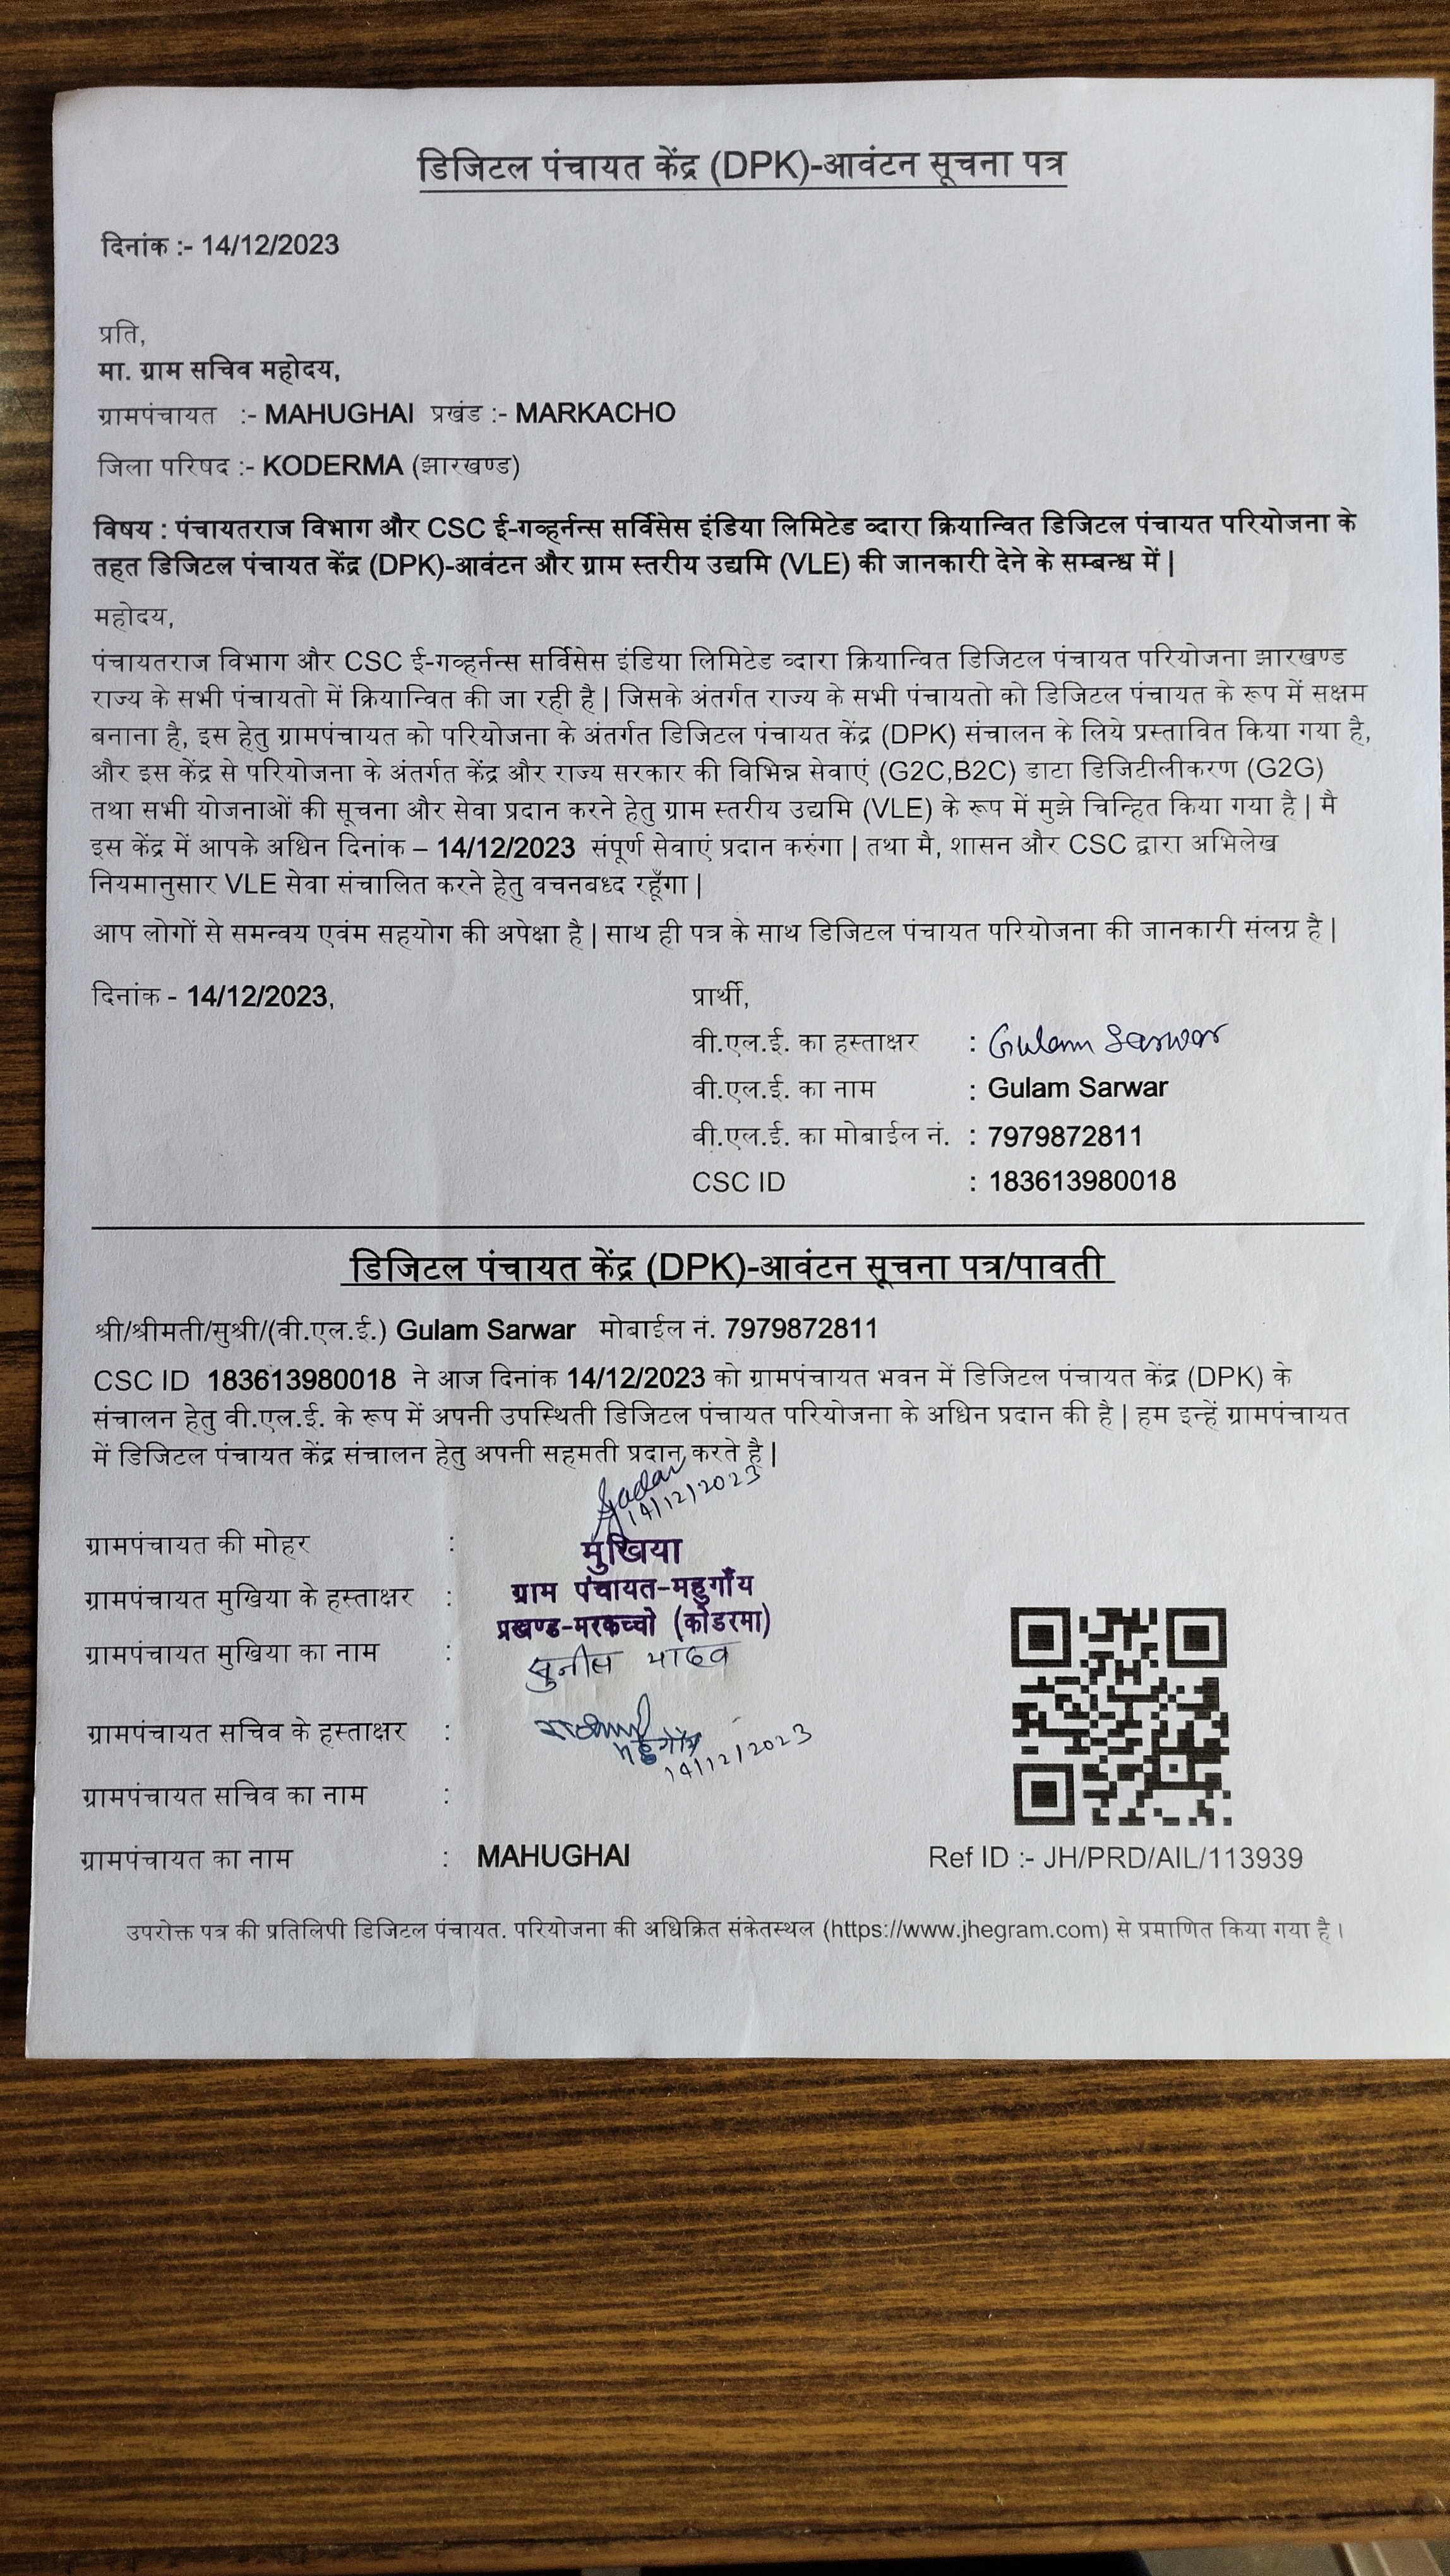 डिजिटल पंचायत केंद्र (DPK)-आवंटन सूचना पत्र
दिनांक :- 14/12/2023
प्रति,
मा. ग्राम सचिव महोदय,
ग्रामपंचायत :- MAHUGHAI प्रखंड :- MARKACHO
जिला परिषद :- KODERMA (झारखण्ड)
विषय : पंचायतराज विभाग और CSC ई-गव्हर्नन्स सर्विसेस इंडिया लिमिटेड व्दारा क्रियान्वित डिजिटल पंचायत परियोजना के
तहत डिजिटल पंचायत केंद्र (DPK)-आवंटन और ग्राम स्तरीय उद्यमि (VLE) की जानकारी देने के सम्बन्ध में |
महोदय,
पंचायतराज विभाग और CSC ई-गव्हर्नन्स सर्विसेस इंडिया लिमिटेड व्दारा क्रियान्वित डिजिटल पंचायत परियोजना झारखण्ड
राज्य के सभी पंचायतो में क्रियान्वित की जा रही है | जिसके अंतर्गत राज्य के सभी पंचायतो को डिजिटल पंचायत के रूप में सक्षम
बनाना है, इस हेतु ग्रामपंचायत को परियोजना के अंतर्गत डिजिटल पंचायत केंद्र (DPK) संचालन के लिये प्रस्तावित किया गया है,
और इस केंद्र से परियोजना के अंतर्गत केंद्र और राज्य सरकार की विभिन्न सेवाएं (G2C,B2C) डाटा डिजिटीलीकरण (G2G)
तथा सभी योजनाओं की सूचना और सेवा प्रदान करने हेतु ग्राम स्तरीय उद्यमि (VLE) के रूप में मुझे चिन्हित किया गया है | मै
इस केंद्र में आपके अधिन दिनांक – 14/12/2023 संपूर्ण सेवाएं प्रदान करुंगा | तथा मै, शासन और CSC द्वारा अभिलेख
नियमानुसार VLE सेवा संचालित करने हेतु वचनबध्द रहूँगा |
आप लोगों से समन्वय एवंम सहयोग की अपेक्षा है | साथ ही पत्र के साथ डिजिटल पंचायत परियोजना की जानकारी संलग्न है |
दिनांक - 14/12/2023,
प्रार्थी,
वी.एल.ई. का हस्ताक्षर : Gulam Sarwar
वी.एल.ई. का नाम : Gulam Sarwar
वी.एल.ई. का मोबाईल नं. : 7979872811
CSC ID : 183613980018
डिजिटल पंचायत केंद्र (DPK)-आवंटन सूचना पत्र/पावती
श्री/श्रीमती/सुश्री/(वी.एल.ई.) Gulam Sarwar मोबाईल नं. 7979872811
CSC ID 183613980018 ने आज दिनांक 14/12/2023 को ग्रामपंचायत भवन में डिजिटल पंचायत केंद्र (DPK) के
संचालन हेतु वी.एल.ई. के रूप में अपनी उपस्थिती डिजिटल पंचायत परियोजना के अधिन प्रदान की है | हम इन्हें ग्रामपंचायत
में डिजिटल पंचायत केंद्र संचालन हेतु अपनी सहमती प्रदान करते है |
14/12/2023
ग्रामपंचायत की मोहर : मुखिया
ग्रामपंचायत मुखिया के हस्ताक्षर : ग्राम पंचायत-महुगाँय
प्रखण्ड-मरकच्चो (कोडरमा)
ग्रामपंचायत मुखिया का नाम : सुनील यादव
ग्रामपंचायत सचिव के हस्ताक्षर :
14/12/2023
ग्रामपंचायत सचिव का नाम :
ग्रामपंचायत का नाम : MAHUGHAI
Ref ID :- JH/PRD/AIL/113939
उपरोक्त पत्र की प्रतिलिपी डिजिटल पंचायत. परियोजना की अधिक्रित संकेतस्थल (https://www.jhegram.com) से प्रमाणित किया गया है ।